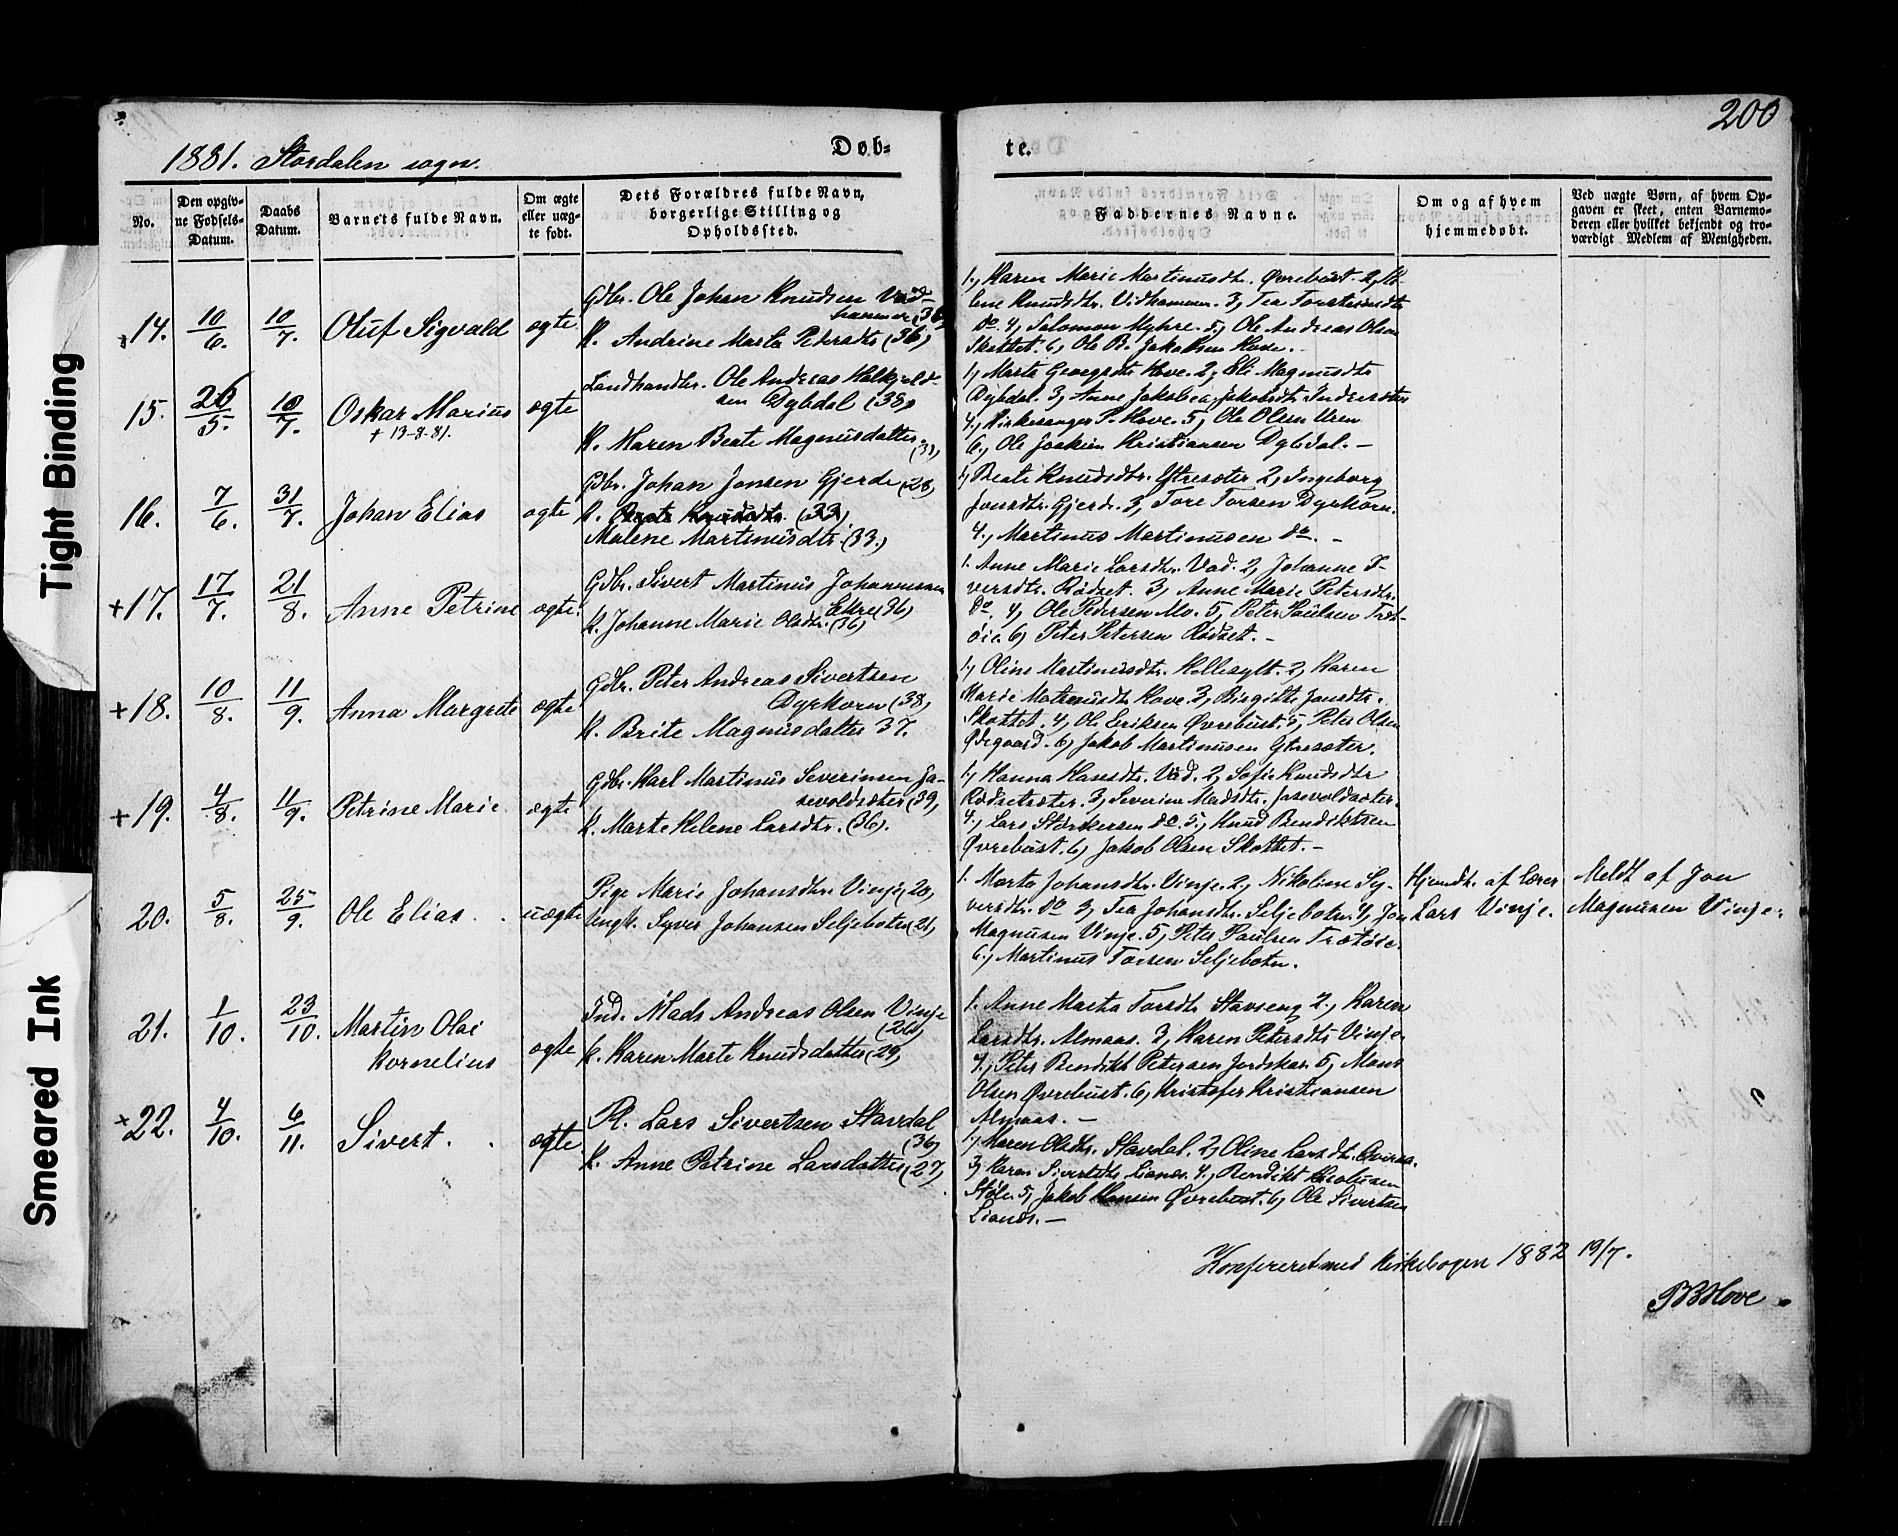 200
1881. Stordalen sogn.
Døb-
te.
No.
Den opgiv-
ne Fødsels-
Datum.
Daabs
Datum.
Barnets fulde Navn.
Om ægte
eller uæg-
te født.
Dets Forældres fulde Navn,
borgerlige Stilling og
Opholdssted.
Faddernes Navne.
Om og af hvem
hjemmedøbt.
Ved uægte Børn, af hvem Op-
gaven er skeet, enten Barnemo-
deren eller hvilket bekjendt og tro-
værdigt Medlem af Menigheden.
14. 10/6. 10/7. Oluf Sigvald ægte
Gdbr. Ole Johan Knudsen Vid-
hammer (36)
K. Andrine Marta Petersdtr (36)
1, Karen Marie Martinusdtr. Øvrebust. 2,
lene Knudsdtr. Vidhammer. 3, Tea Torsteinsdtr
do. 4, Salomon Myhre. 5, Ole Andreas Olsen
Skottet. 6, Ole B. Jakobsen Hove.
15. 26/5. 10/7. Oskar Marius ægte
+ 13-8-81.
Landhandler. Ole Andreas Halkjeld-
sen Dybdal (38)
K. Maren Beate Magnusdatter
1, Marte Georgsdtr Hove. 2, Eli Magnusdtr
Dybdal. 3, Anne Jakobea Jakobsdtr Indresæter
4, Kirkesanger P. Hove. 5, Ole Olsen Uren
6, Ole Joakim Kristiansen Dybdal. –
16. 7/6. 31/7. Johan Elias ægte
Gdbr. Johan Jonsen Gjerde (28)
K. Knudsdtr. (33).
Malene Martinusdtr. (33.)
1, Beate Knudsdtr. Ytresæter 2, Ingeborg
Jonsdtr. Gjerde. 3, Tore Torsen Dyrkorn.
4., Martinus Martinusen do. –
+17. 17/7. 21/8. Anne Petrine ægte.
Gdbr. Sivert Martinus Johannessen
Ekre (36)
K. Johanne Marie Olsdtr. (36)
1. Anne Marie Larsdtr. Vad. 2, Johanne I-
versdtr. Rødset. 3, Anne Marie Petersdtr.
do. 4, Ole Pedersen Mo. 5, Peter Paulsen Træt-
øie. 6, Peter Petersen Rødset. –
+18. 10/8. 11/9. Anna Margrete ægte
Gdbr. Peter Andreas Sivertsen
Dyrkorn (38)
K. Brite Magnusdatter 37.
1., Oline Martinusdtr. Hellesylt. 2, Karen
Marie Hove. 3, Birgitte Jonsdtr.
Skottet. 4, Ole Eriksen Øvrebust. 5, Peter Olsen
Ødegaard. 6, Jakob Martinusen Ytresæter.
+19. 4/8. 11/9. Petrine Marie. ægte
Gdbr. Karl Martinus Severinsen Ja-
sevoldsæter (39)
K. Marte Helene Larsdtr. (36).
1., Hanna Hansdtr. Vad. 2, Sofie Knudsdtr
Rødsetsæter. 3, Severine Madsdtr. Jasevoldsæter.
4., Lars Størkersen do. 5., Knud Bendiktsen
Øvrebust. 6, Jakob Olsen Skottet. –
20. 5/8. 25/9. Ole Elias. uægte
Pige Marie Johansdtr. Vinje (20)
Ungk. Syver Johansen Seljebotn (21)
1. Marta Johansdtr. Vinje. 2, Nikoline Sy-
versdtr. do 3, Tea Johansdtr. Seljebotn. 4, Jon
Magnusen Vinje. 5, Peter Paulsen Trætøie.
6., Martinus Torsen Seljebotn.
Hjemdt. af Lærer
Lars Vinje.
Meldt af Jon
Magnusen Vinje.
21. 1/10. 23/10. Martin Olai
Kornelius
ægte
Ind. Mads Andreas Olsen Vinje
K. Karen Marte Knudsdatter (29)
1. Anne Marta Torsdtr Stavseng 2., Karen
Larsdtr. Almaas. 3, Karen Petersdtr Vinje.
4., Peter Bendikt Petersen Jordskar. 5, Mons
Olsen Øvrebust. 6, Kristofer Kristiansen
Almaas. –
+22. 4/10. 6/11. Sivert. ægte
Pl. Lars Sivertsen Stavdal
(36)
K. Anne Petrine Larsdatter (27)
1, Karen Olsdtr. Stavdal. 2, Oline Larsdtr.
3, Karen Sivertsdtr. Lianes. 4., Bendikt Jacobusen
Støle. 5, Jakob Hansen Øvrebust. 6, Ole Sivertsen
Lianes. –
Konfereret med Kirkebogen 1882 19/7.
PBHove
Tight Binding
Smeared Ink